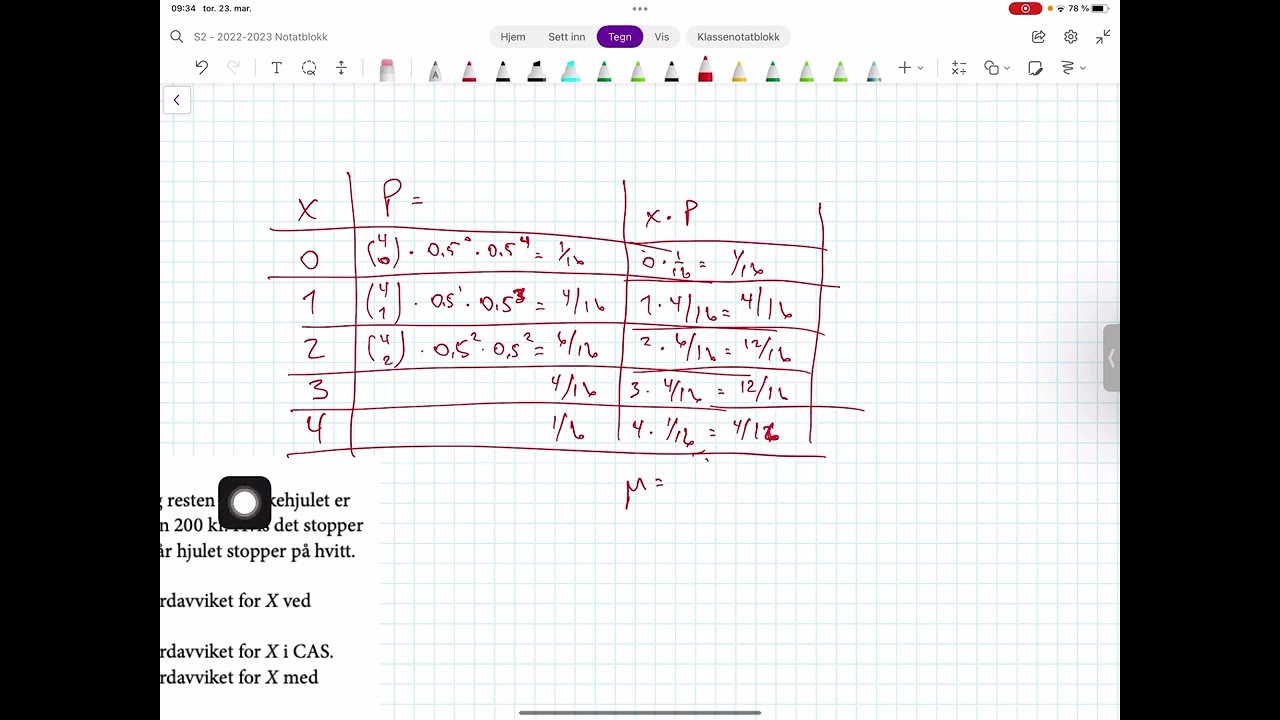 09:34 tor. 23. mar. 78 %
S2 - 2022-2023 Notatblokk Hjem Sett inn Tegn Vis Klassenotatblokk
T A
X P = x · P
0 (4 0) · 0,5⁰ · 0,5⁴ = 1/16 0 · 1/16 = 1/16
1 (4 1) · 0,5¹ · 0,5³ = 4/16 1 · 4/16 = 4/16
2 (4 2) · 0,5² · 0,5² = 6/16 2 · 6/16 = 12/16
3 4/16 3 · 4/16 = 12/16
4 1/16 4 · 1/16 = 4/16
μ =
resten kehjulet er
n 200 kr. det stopper
år hjulet stopper på hvitt.
rdavviket for X ved
rdavviket for X i CAS.
rdavviket for X med